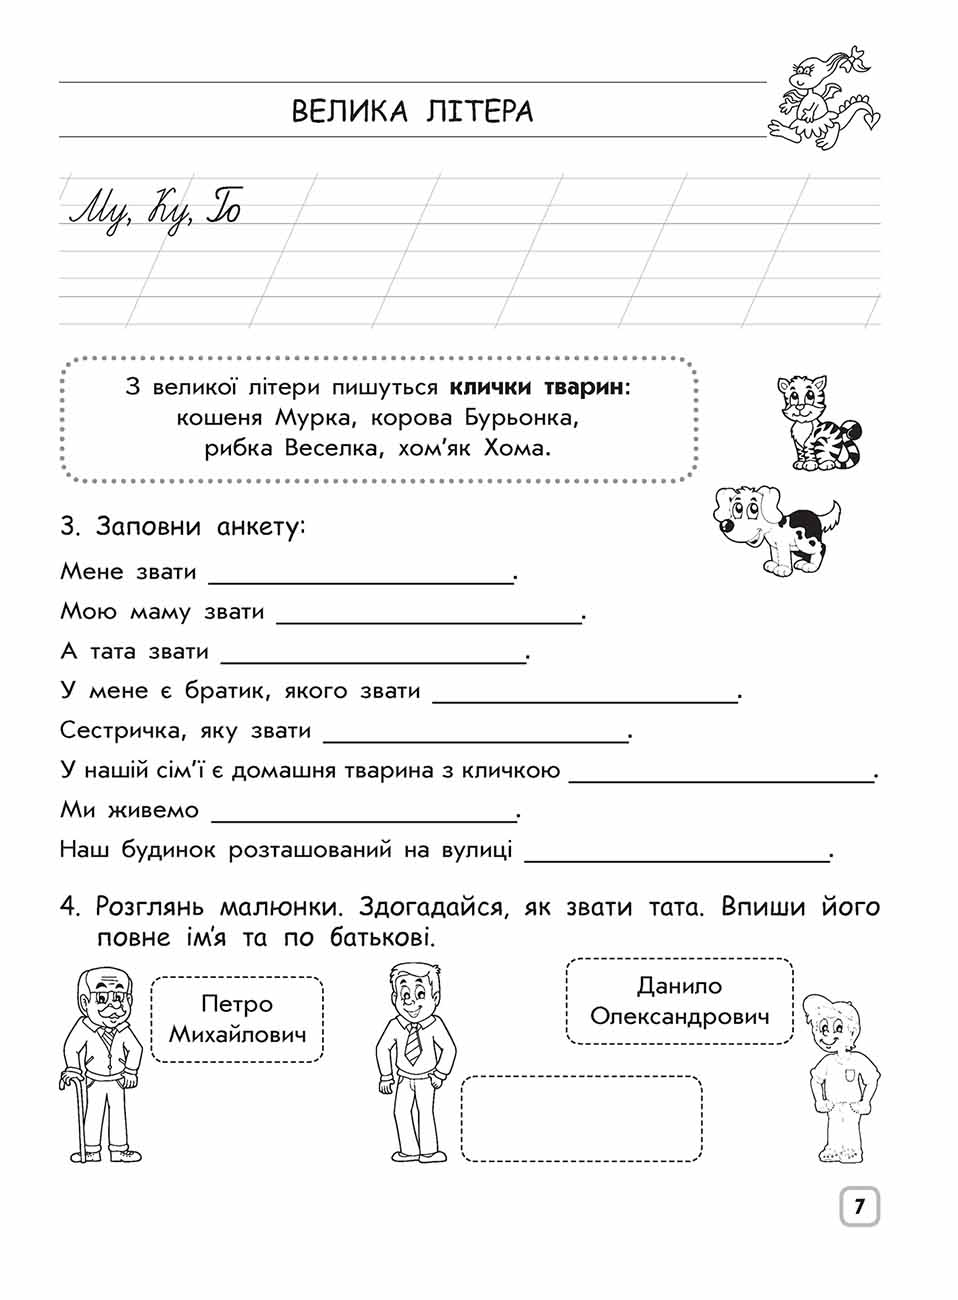 ВЕЛИКА ЛІТЕРА
Му, Ку, Го
З великої літери пишуться клички тварин:
кошеня Мурка, корова Бурьонка,
рибка Веселка, хом’як Хома.
3. Заповни анкету:
Мене звати ____________.
Мою маму звати ____________.
А тата звати ____________.
У мене є братик, якого звати ____________.
Сестричка, яку звати ____________.
У нашій сім’ї є домашня тварина з кличкою ____________.
Ми живемо ____________.
Наш будинок розташований на вулиці ____________.
4. Розглянь малюнки. Здогадайся, як звати тата. Впиши його
повне ім’я та по батькові.
Петро
Михайлович
Данило
Олександрович
7